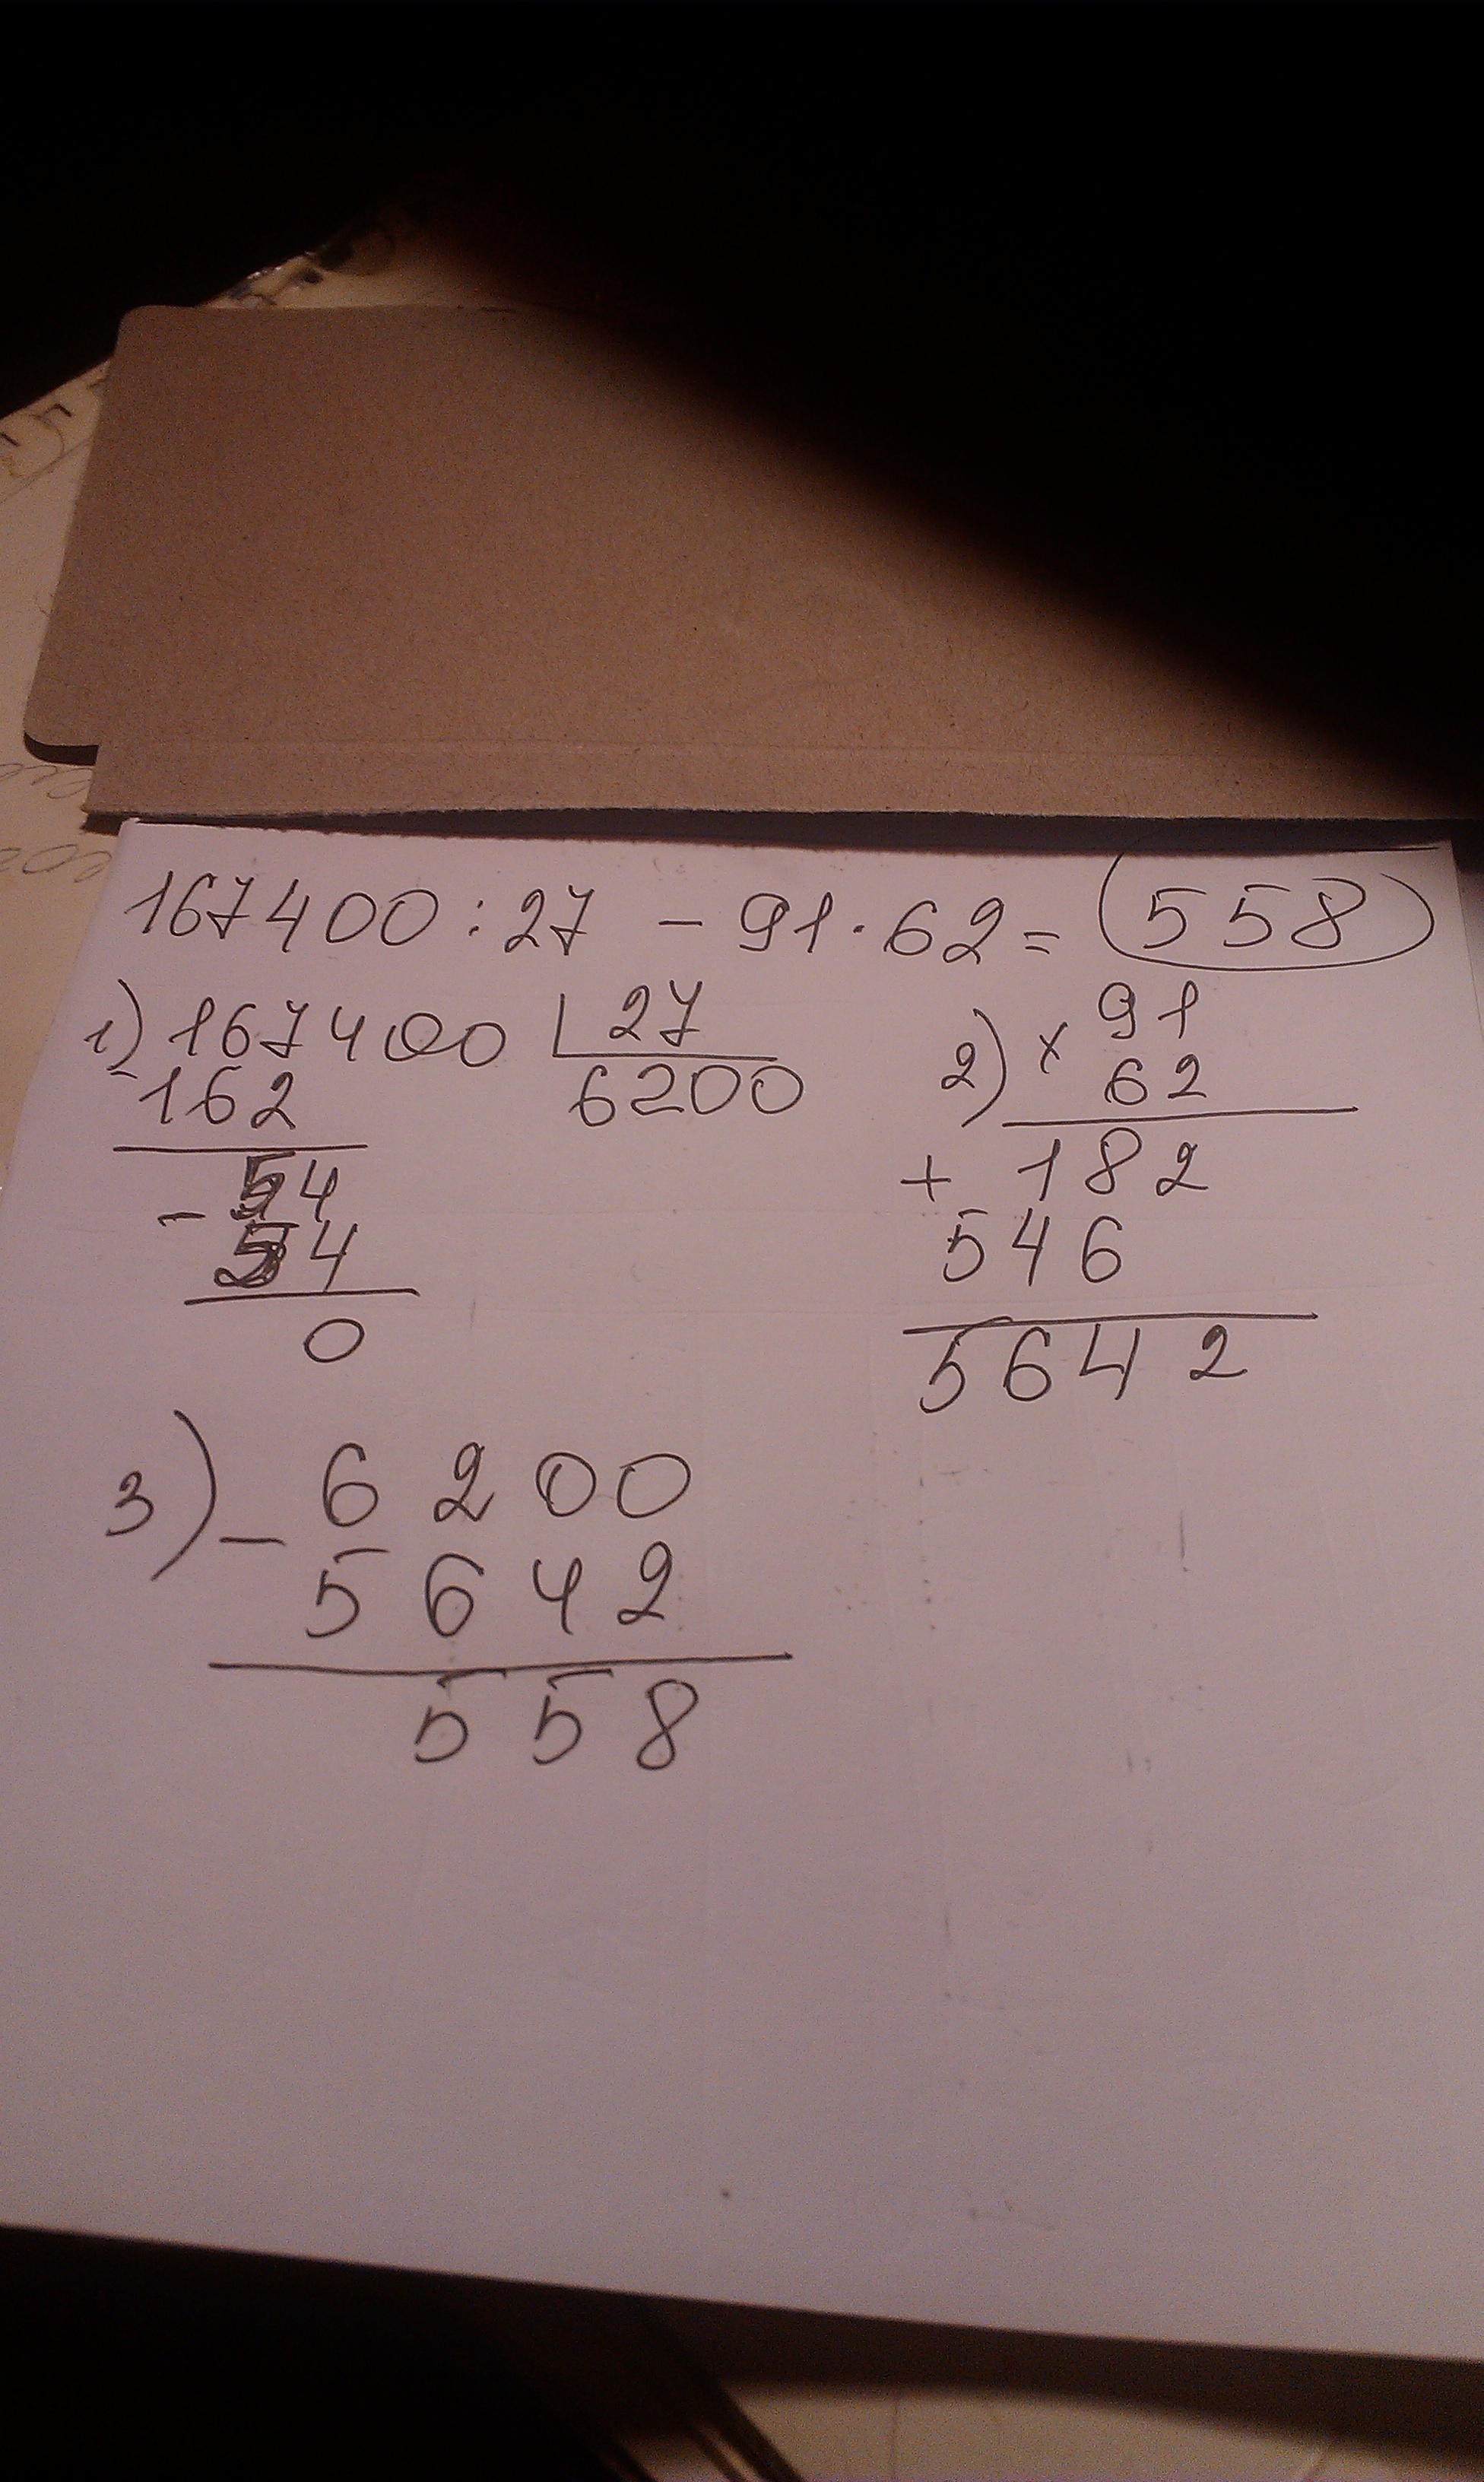 167400:27 - 91·62= 558
1) 167400 27
-162 6200
54
- 54
0
2) × 91
62
+ 182
546
5642
3) - 6200
5642
558